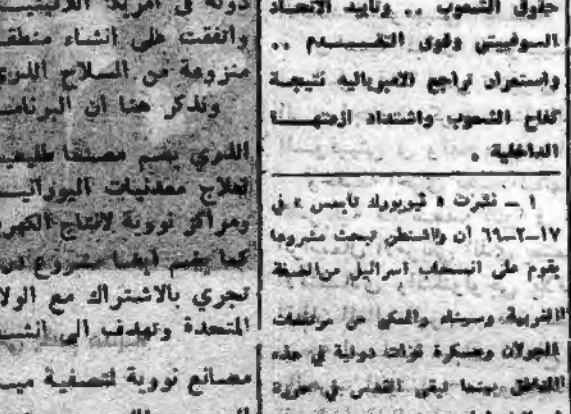 حقوق الشعوب .. وتأييد الاتحاد
السوفييتي وقوى التقـــدم ..
واستمرار تراجع الامبريالية نتيجة
كفاح الشعوب واشتداد ازمتهـــا
الداخلية .
١ ــ نشرت « نيويورك تايمس » في
١٧ــ٢ــ٦٩ أن واشنطن تبحث مشروعا
يقوم على انسحاب اسرائيل من الضفة
الغربية وسيناء
الجولان قوات دولية في هذه
المناطق بينما تبقى القدس
دولة في أمريكا اللاتينيـــ
واتفقت على انشاء منطقـ
منزوعة من السلاح الذري
ونذكر هنا أن البرنامـ
الذري يضم مصنعا
لعلاج معدنيات اليورانيـ
ومراكز نووية لانتاج الكهر
كما يضم أيضا مشروع
تجري بالاشتراك مع الولا
المتحدة وتهدف الى انشـ
مصانع نووية لتصفية ميـ